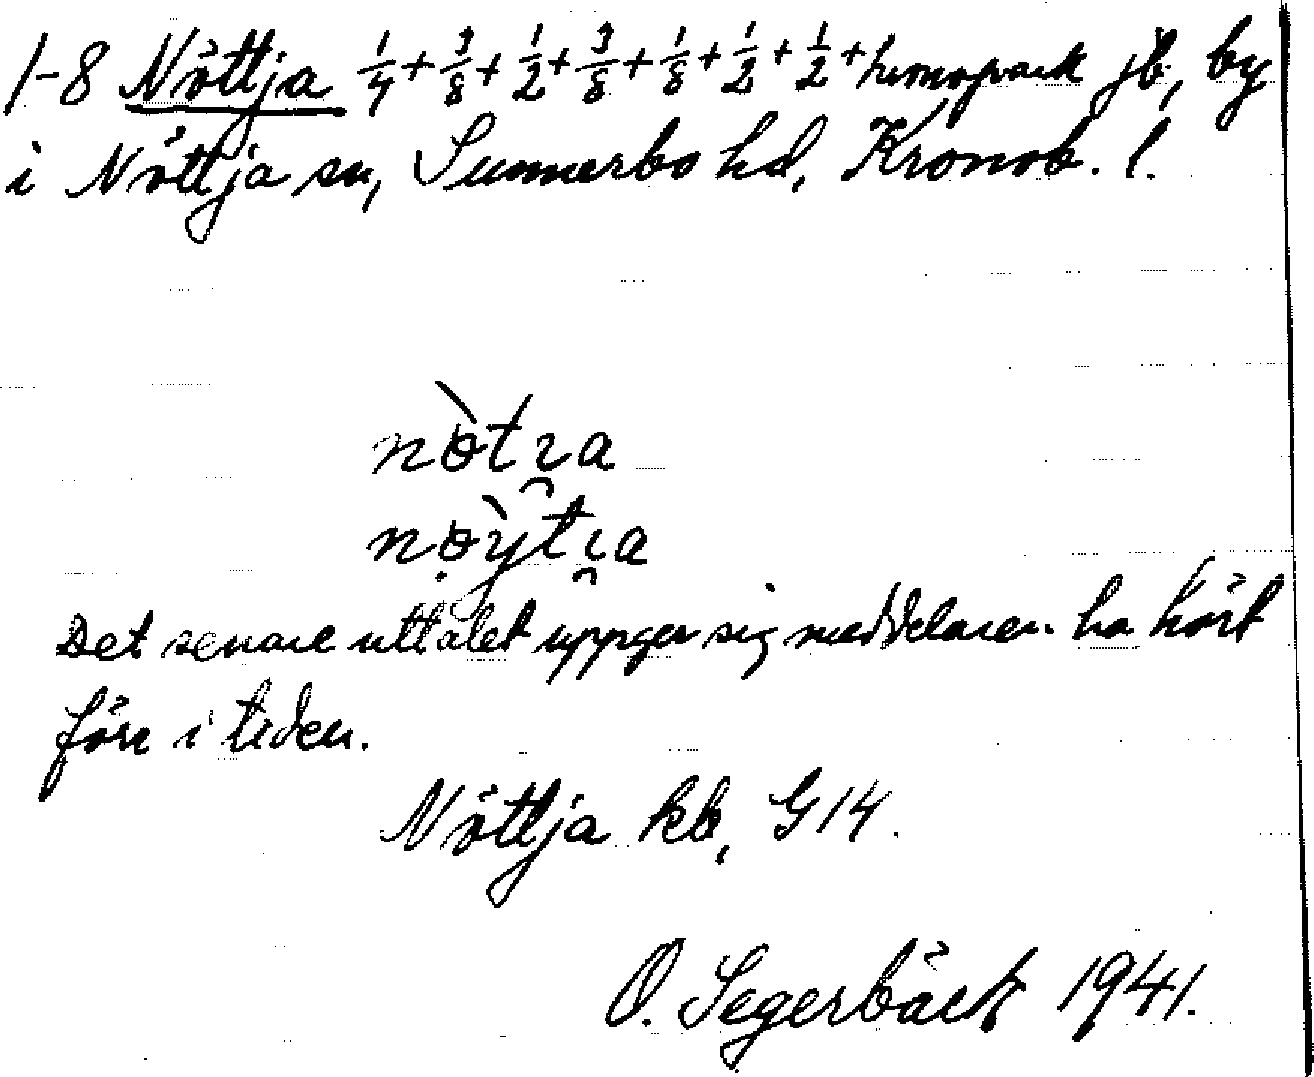 1-8 Nöttja 1/4 + 3/8 + 1/2 + 3/8 + 1/8 + 1/2 + 1/2 + hmopark jb, by
i Nöttja sn, Sunnerbo hd, Kronob. l.
nɵ̀tı̯a
nɵ̣ỳtı̯a
Det senare uttalet uppger sig meddelaren ha hört
förr i tiden.
Nöttja kb, G14.
O. Segerbäck 1941.